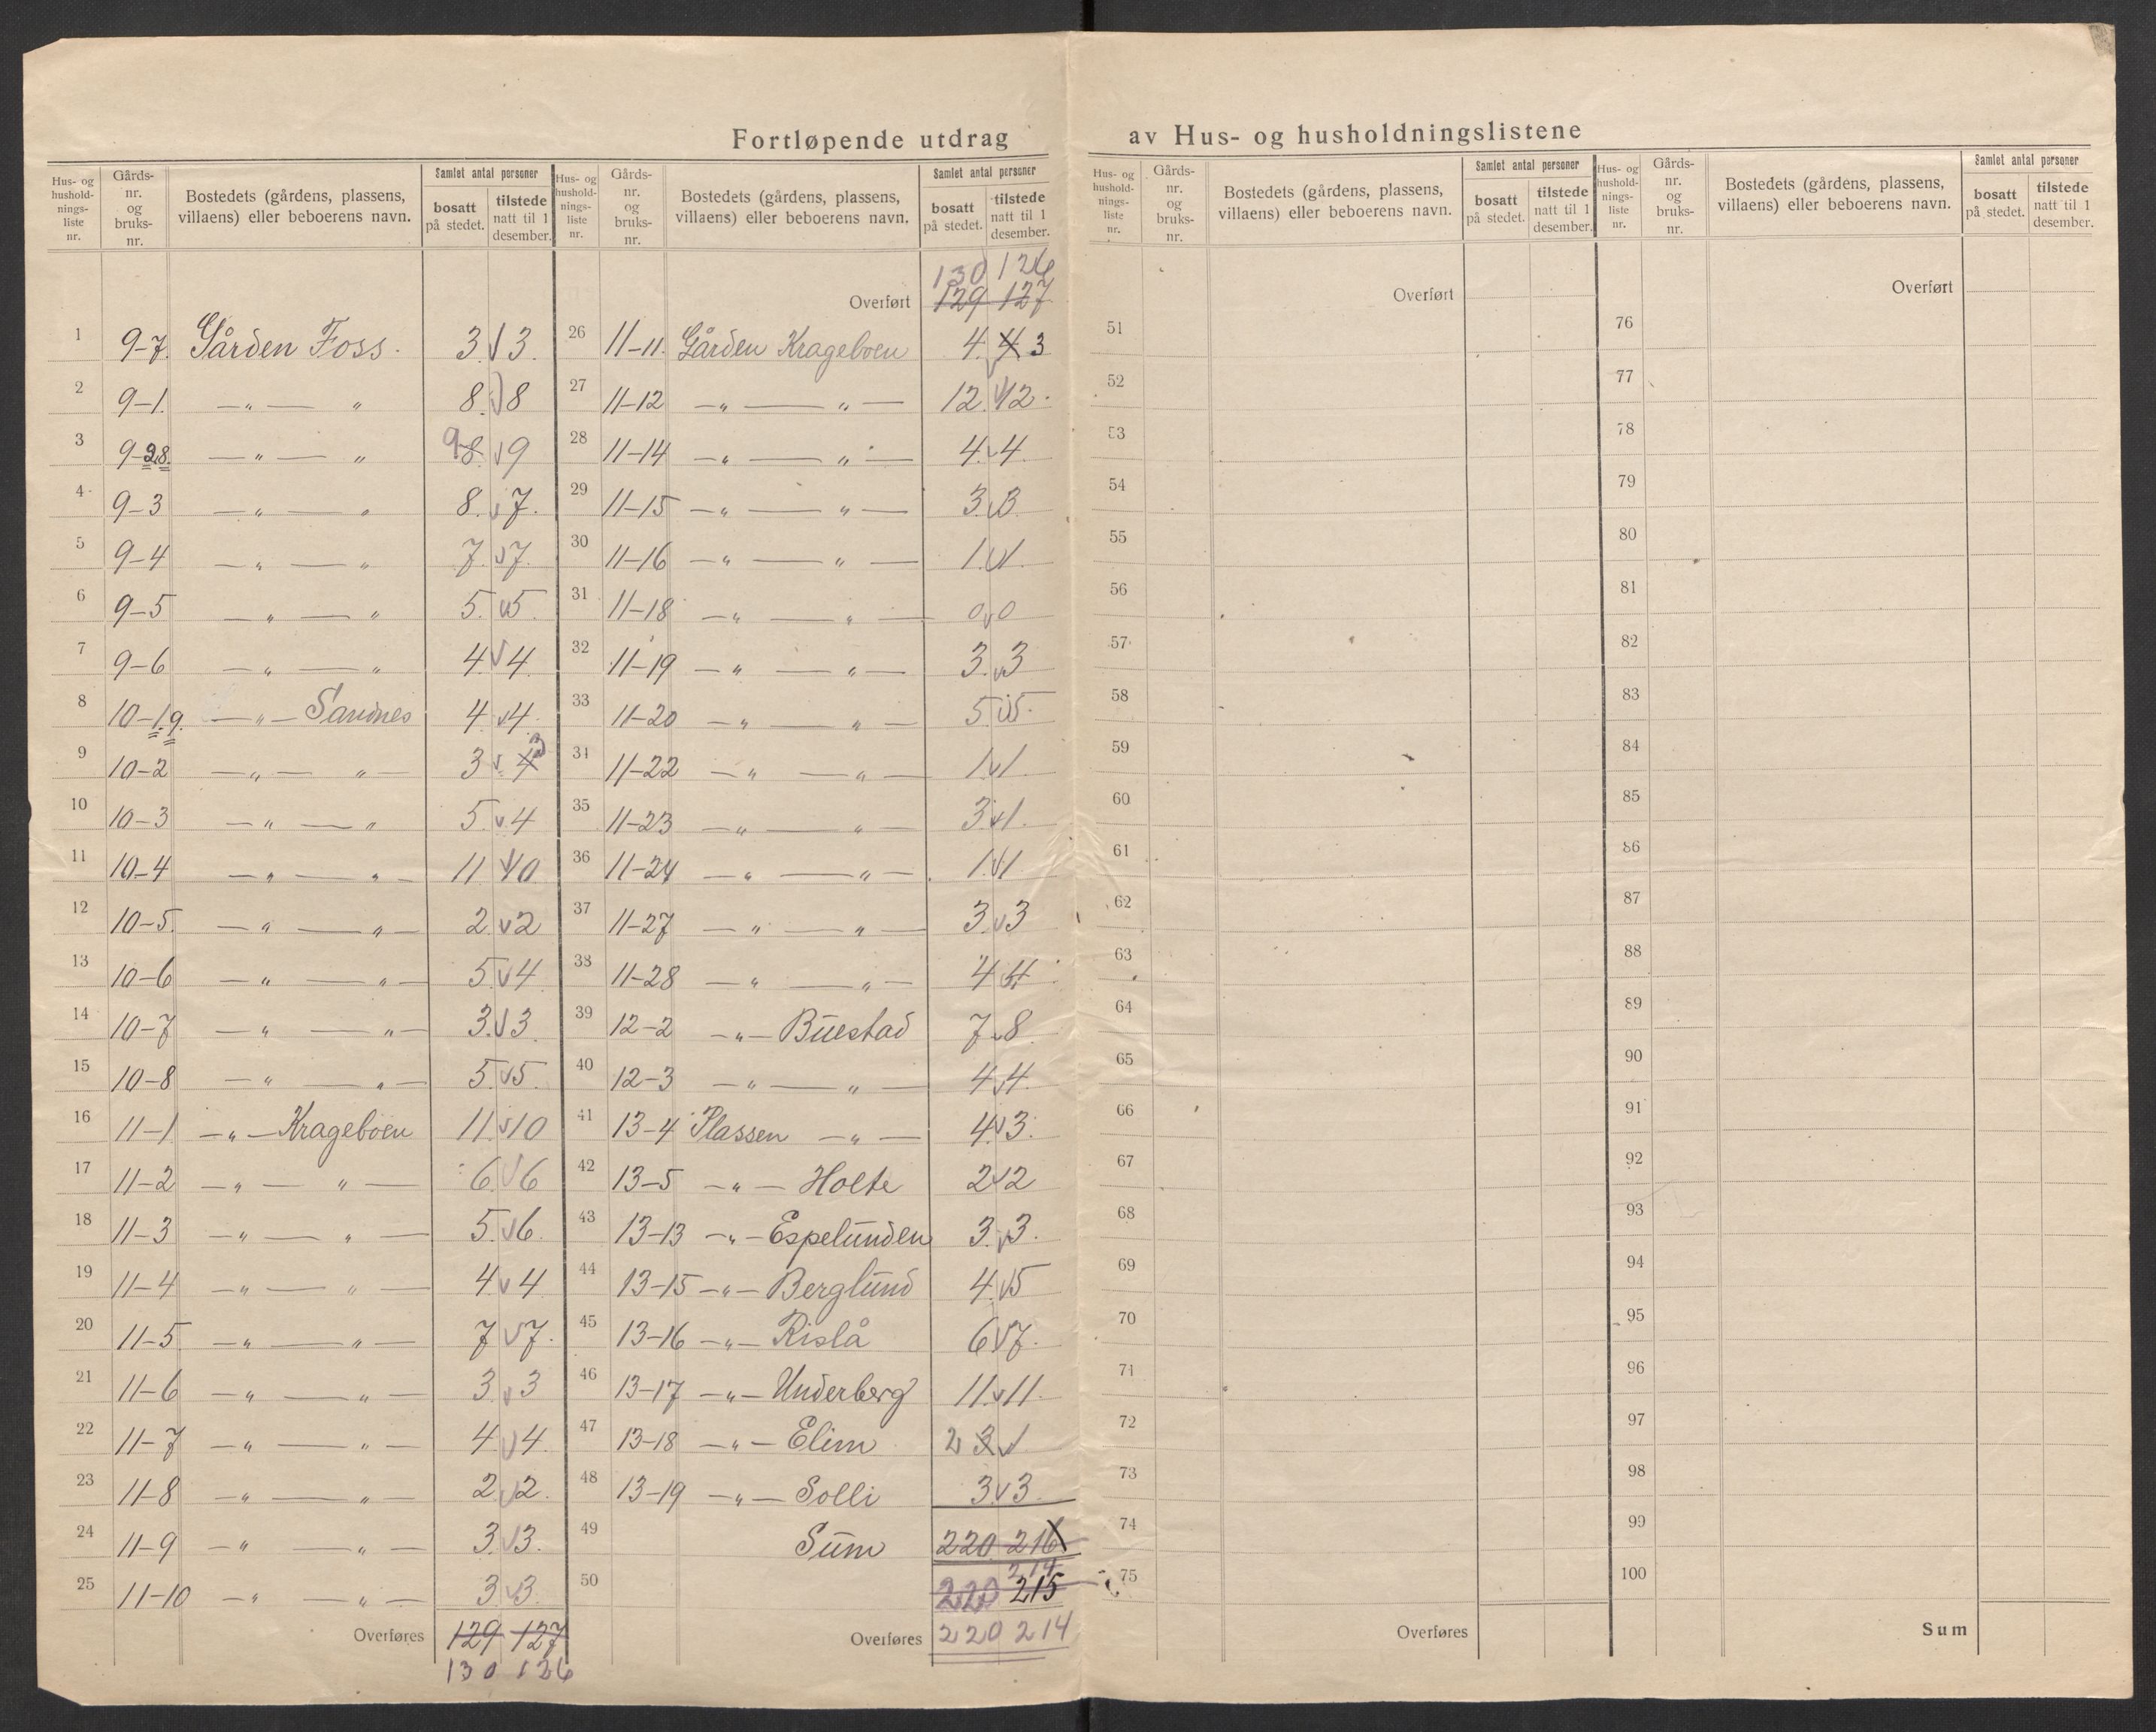 Fortløpende utdrag av Hus- og husholdningslistene
Hus- og hushold-nings-liste nr. Gårds-nr. og bruks-nr. Bostedets (gårdens, plassens, villaens) eller beboerens navn. Samlet antal personer bosatt på stedet. tilstede natt til 1 desember.
1 9-7. Gården Foss. 3. 3.
2 9-1. —„— „ 8. 8
3 9-2,8. —„— „ 9 8. 9
4 9-3 —„— „ 8. 7.
5 9-4 —„— „ 7. 7.
6 9-5 „ — „ 5. 5.
7 9-6 —„— „ 4. 4.
8 10-1,9. —„— Sandnes 4. 4.
9 10-2 —„— „— 3 4 3
10 10-3 —„— „ 5. 4
11 10-4 —„— „— 11 10
12 10-5. —„— „— 2. 2
13 10-6 —„— „— 5. 4
14 10-7 —„— „— 3. 3.
15 10-8 —„— „— 5. 5.
16 11-1 —„— Krageboen 11. 10
17 11-2 —„— „— 6. 6
18 11-3 —„— „— 5. 6.
19 11-4 —„— „— 4 4
20 11-5 —„— „— 7 7.
21 11-6 —„— „— 3. 3
22 11-7 —„— „— 4. 4.
23 11-8 —„— „— 2. 2.
24 11-9 —„— „— 3. 3.
25 11-10 —„— „— 3. 3.
Overføres 129 127
130 126
Hus- og hushold-nings-liste nr. Gårds-nr. og bruks-nr. Bostedets (gårdens, plassens, villaens) eller beboerens navn. Samlet antal personer bosatt på stedet. tilstede natt til 1 desember.
130 126
Overført 129 127
26 11-11. Gården Krageboen 4. 4 3
27 11-12 —„— „— 12. 12.
28 11-14 —„— „— 4. 4.
29 11-15 —„— „— 3. 3.
30 11-16 —„— „— 1. 1.
31 11-18 —„— „— 0 0
32 11-19 —„— „— 3. 3
33 11-20 —„— „— 5. 5.
34 11-22 —„— „— 1. 1.
35 11-23 —„— „— 3. 1.
36 11-24 —„— „— 1. 1.
37 11-27 —„— „— 3. 3
38 11-28 —„— „— 4 4
39 12-2 —„— Buestad 7 8.
40 12-3 —„— „— 4. 4.
41 13-4 Plassen —„— 4. 3.
42 13-5 —„— Holte 2 2
43 13-13 —„— Espelunden 3. 3.
44 13-15 —„— Berglund 4. 5
45 13-16 —„— Rislå 6 7.
46 13-17 —„— Underberg 11. 11.
47 13-18 —„— Elim 2 3 1
48 13-19 —„— Solli 3. 3.
49 Sum 220 216
214
50 220 215
Overføres 220 214
Hus- og hushold-nings-liste nr. Gårds-nr. og bruks-nr. Bostedets (gårdens, plassens, villaens) eller beboerens navn. Samlet antal personer bosatt på stedet. tilstede natt til 1 desember.
Overført
51
52
53
54
55
56
57
58
59
60
61
62
63
64
65
66
67
68
69
70
71
72
73
74
75
Overføres
Hus- og hushold-nings-liste nr. Gårds-nr. og bruks-nr. Bostedets (gårdens, plassens, villaens) eller beboerens navn. Samlet antal personer bosatt på stedet. tilstede natt til 1 desember.
Overført
76
77
78
79
80
81
82
83
84
85
86
87
88
89
90
91
92
93
94
95
96
97
98
99
100
Sum